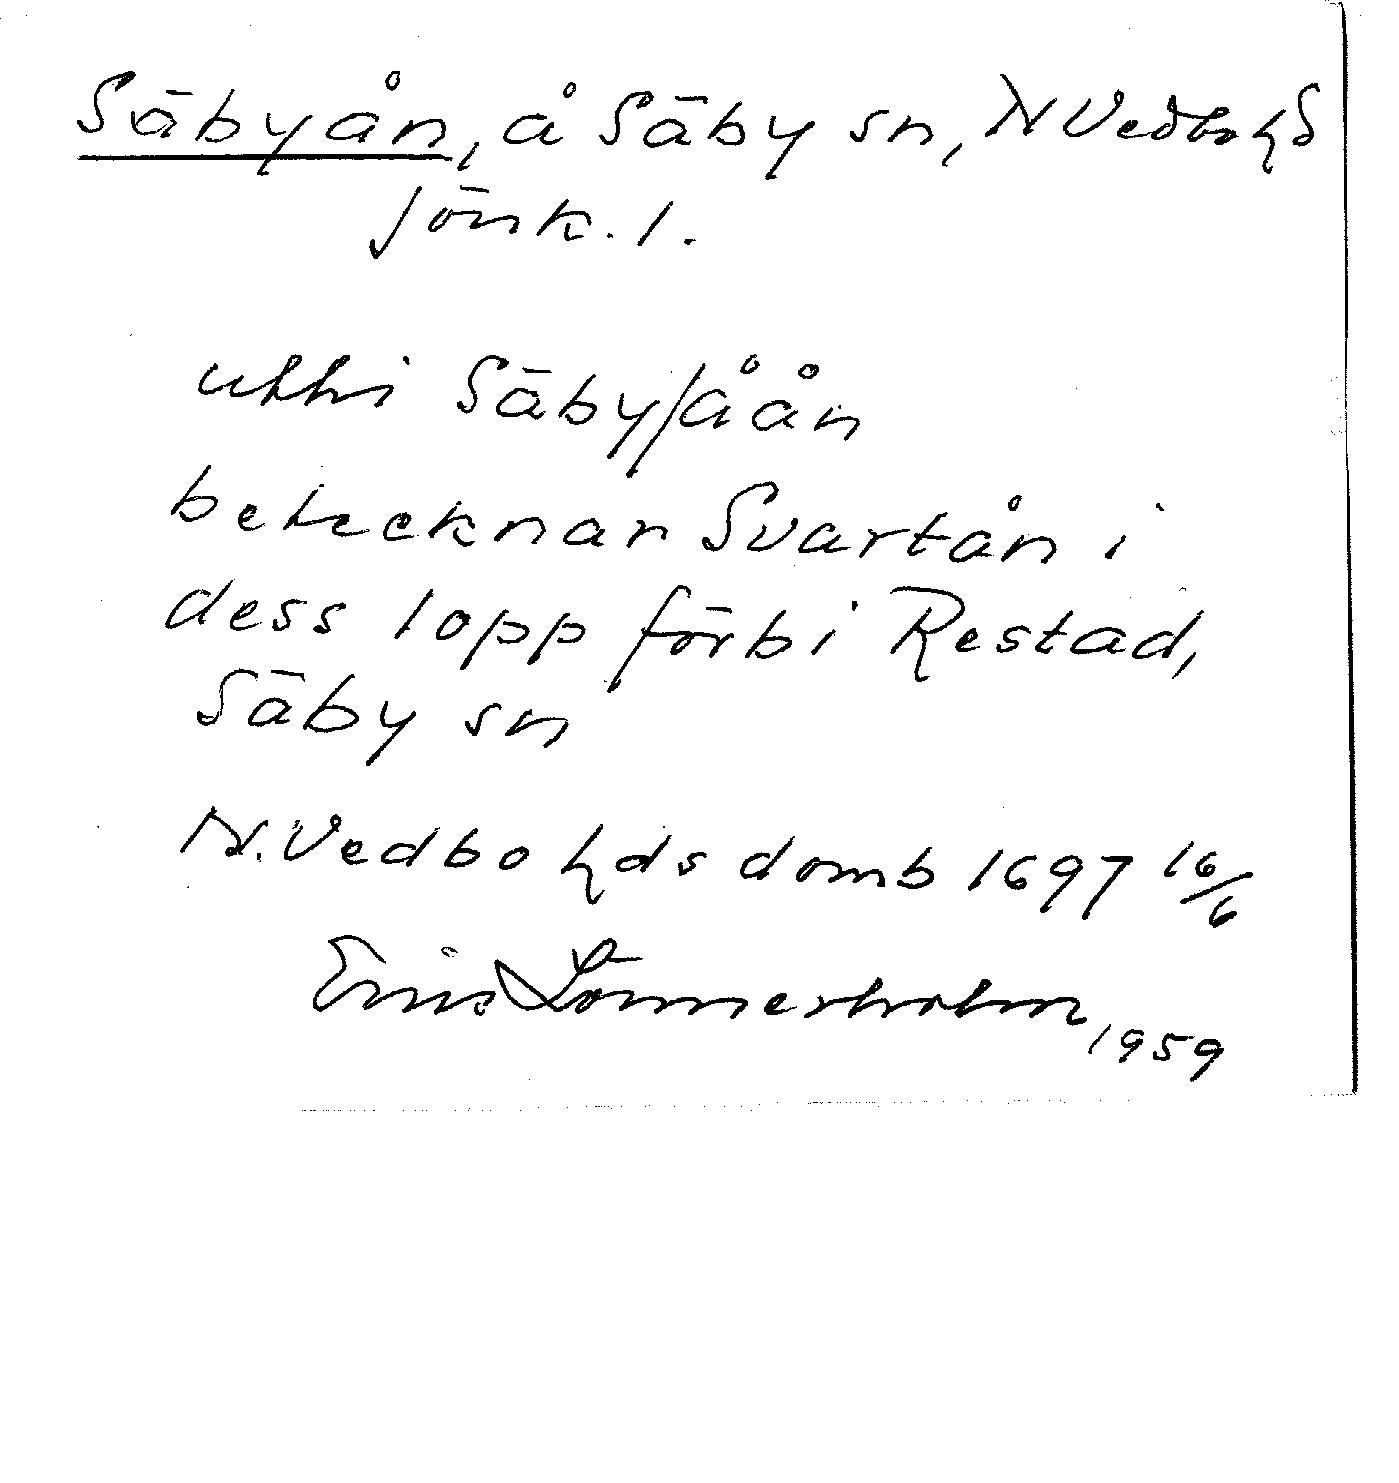 Säbyån, å Säby sn, N Vedbo hd
Jönk. l.
uthi Säby/åån
betecknar Svartån i
dess lopp förbi Restad,
Säby sn
N. Vedbo hds domb 1697 16/6
Lönnerholm 1959